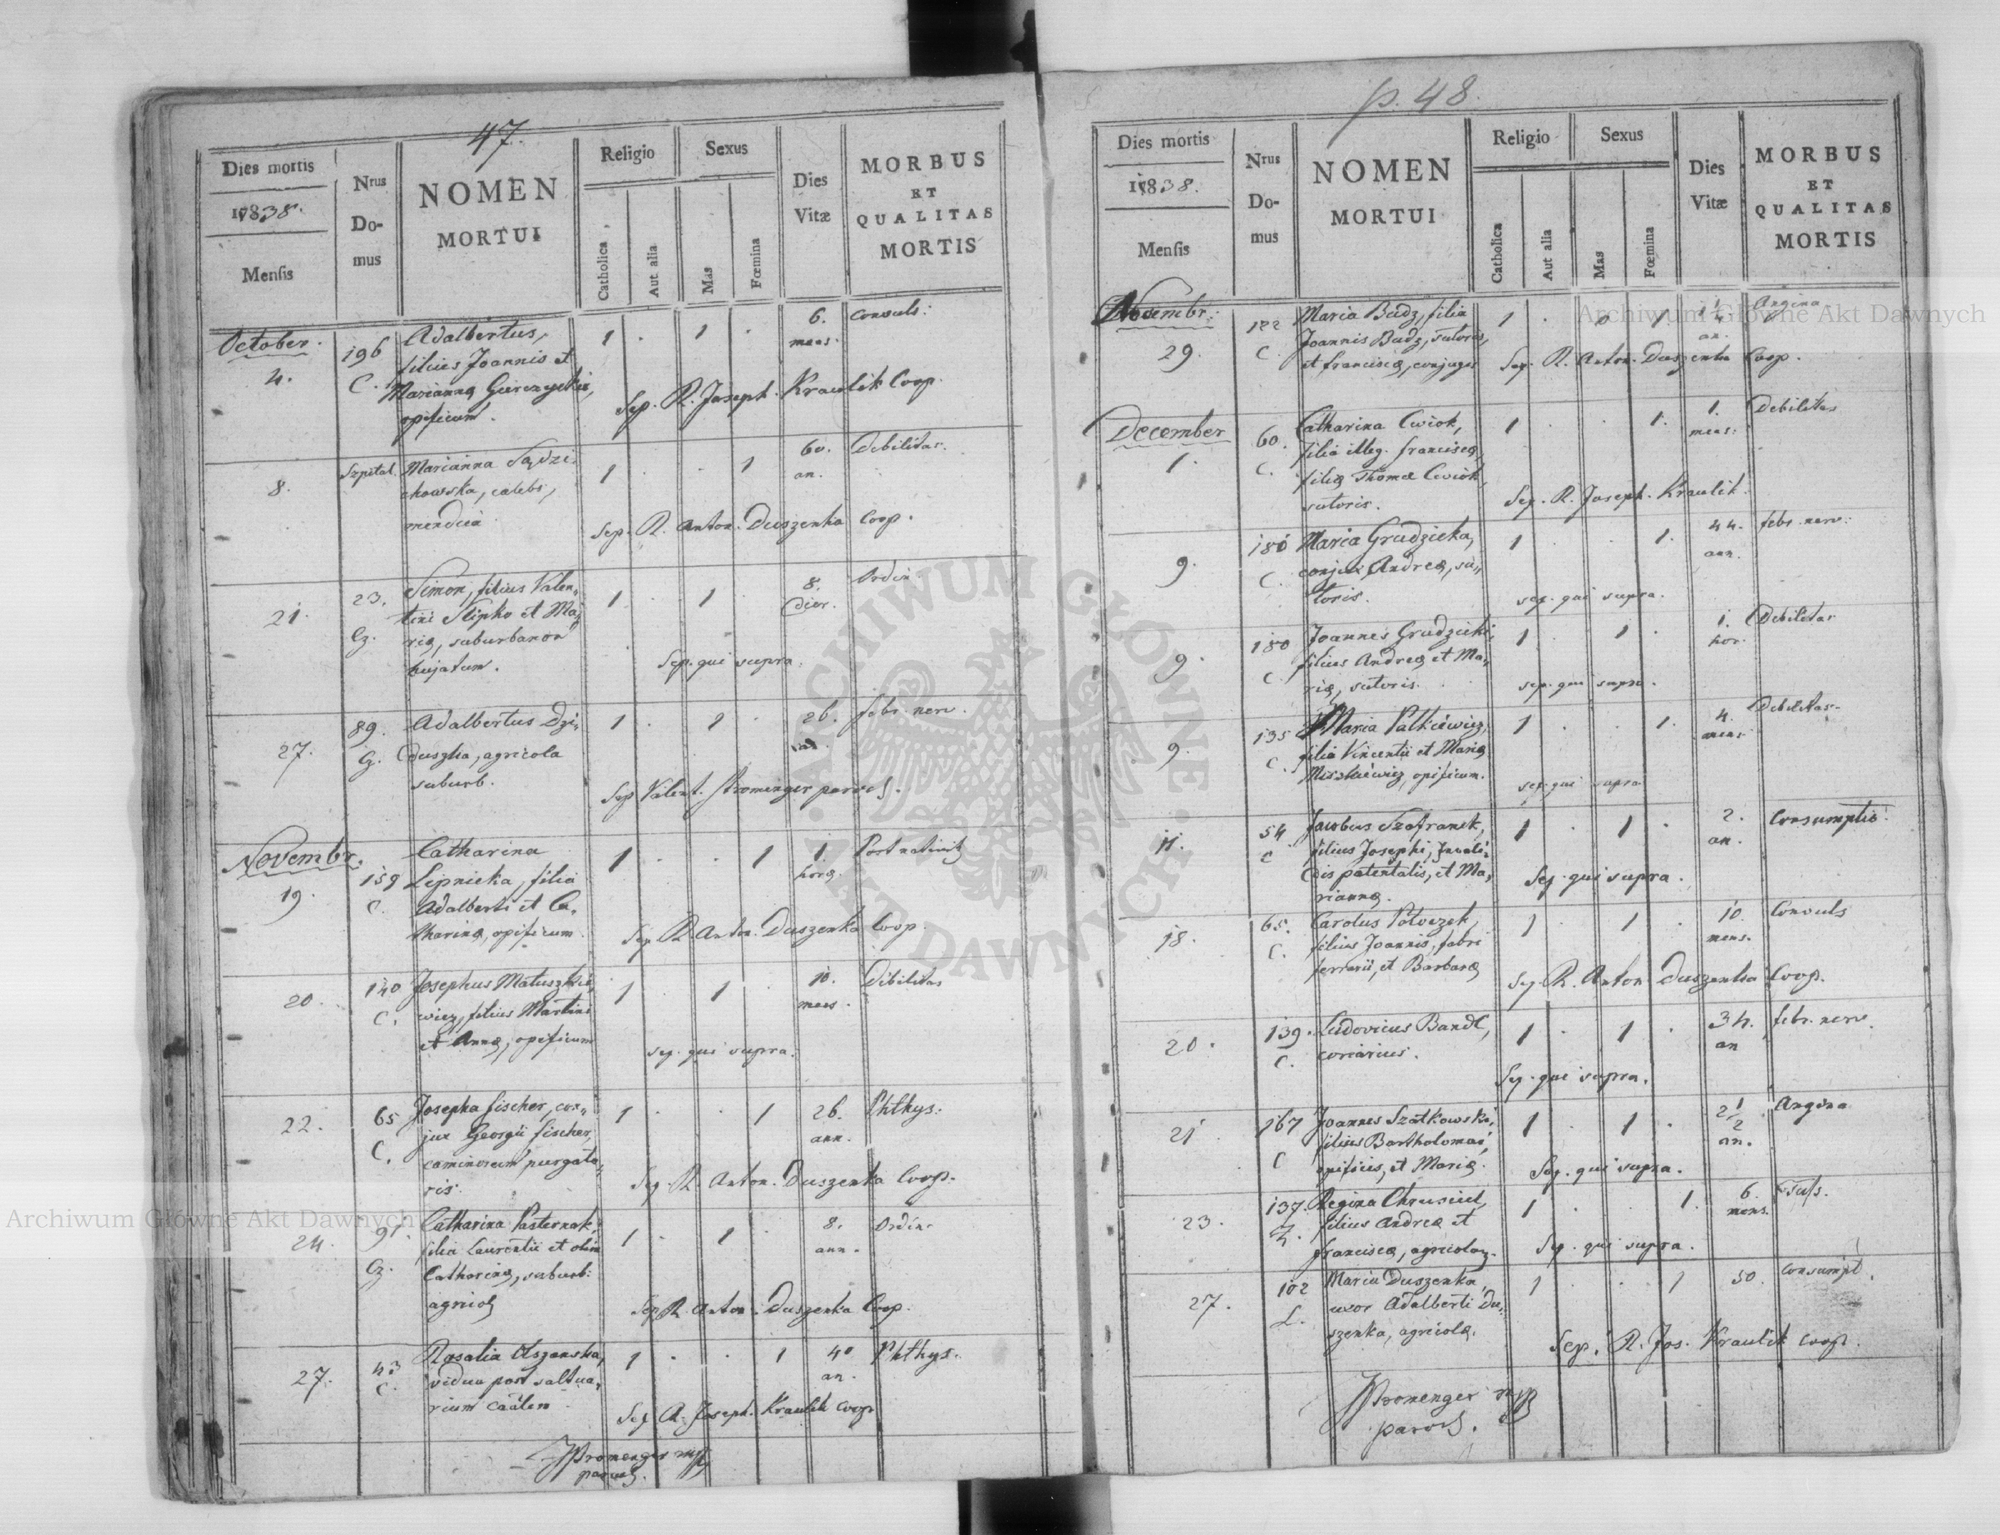 47.
Dies mortis
1838.
Mensis
Nrus Domus
NOMEN
MORTUI
Religio
Catholica
Aut alia
Sexus
Mas
Fœmina
Dies
Vitæ
MORBUS
ET
QUALITAS
MORTIS
October.
4.
196
C.
Adalbertus,
filius Joannis et
Mariannæ
opificum.
1 . 1 .
6.
mens.
Convuls:
Sep. R. Joseph. Kraulik Coop.
8.
Szpital.
Marianna Sędzi-
chowska, cælebs,
mendica
1 . . 1
60.
an.
Debilitas.
Sep. R. Anton. Duszenka Coop.
21.
23.
G.
Simon, filius Valen-
tini Slipko et Ma-
riæ, suburbanor
hujatum.
1 . 1 .
8.
dier.
Ordin.
Sep. qui supra.
27.
89.
G.
Adalbertus Dzi-
duszka, agricola
suburb.
1 . 1 .
26.
an.
febr. nerv.
Sep Valent. Stromenger paroch.
Novembr.
19.
159
C.
Catharina
Lipnicka, filia
Adalberti et Ca-
tharinæ, opificum
1 . . 1
1.
horæ.
Post nativit
Sep. R. Anton. Duszenka Coop.
20.
140
C.
Josephus Matuszkie-
wicz, filius Martini
et Annæ, opificum
1 . 1 .
10.
mens.
Debilitas
sep. qui supra.
22.
65
C.
Josepha Fischer, con-
jux Georgii Fischer,
caminorum purgato-
ris.
1 . . 1
26.
ann.
Phthys:
Sep. R. Anton. Duszenka Coop.
24.
91.
G.
Catharina Pasternak,
filia Laurentii et olim
Catharinæ, suburb:
agricol
1 . 1 .
8.
ann.
Ordin.
Sep R. Anton. Duszenka Coop.
27.
43
C.
Rosalia
vidua post saltua-
rium
1 . . 1
40
an.
Phthys.
Sep R. Joseph. Kraulik Coop
Stromenger mpp
paroch.
p. 48.
Dies mortis
1838.
Mensis
Nrus Domus
NOMEN
MORTUI
Religio
Catholica
Aut alia
Sexus
Mas
Fœmina
Dies
Vitæ
MORBUS
ET
QUALITAS
MORTIS
Novembr.
29.
122
C.
Maria Budz, filia
Joannis Budz, sutoris,
et Franciscæ, conjuges
1 . 0 1
an.
Angina
Sep. R. Anton. Duszenka Coop.
December
1.
60.
C.
Catharina Cwiok,
filia illeg. Franciscæ,
filiæ Thomæ Cwiok,
sutoris.
1 . . 1.
1.
mens.
Debilitas
Sep. R. Joseph. Kraulik.
9.
180
C.
Maria Grudzicka,
conjux Andreæ, su-
toris.
1 . . 1.
44.
ann.
febr. nerv:
sep. qui supra.
9.
180
C.
Joannes Grudzicki,
filius Andreæ et Ma-
riæ, sutoris.
1 . 1 .
1.
hor.
Debilitas
sep. qui supra.
9.
135
C.
Maria Palkiewicz,
filia Vincentii et Mariæ
Miszkiewicz, opificum.
1 . . 1.
4.
mens.
Debilitas.
sep. qui supra
11.
54
C
Jacobus Szafranek,
filius Josephi, Invali-
dis patentalis, et Ma-
riannæ.
1 . 1 .
2.
an.
Consumptio.
Sep. qui supra.
18.
65.
C.
Carolus
filius Joannis, fabri
ferrarii, et Barbaræ
1 . 1 .
10.
mens.
Convuls
Sep. R. Anton Duszenka Coop.
20.
139.
C.
Ludovicus Bandl,
coriarius.
1 . 1 .
34.
an
febr. nerv.
Sep. qui supra.
21
167
C
Joannes Szatkowski,
filius Bartholomæi,
opificis, et Mariæ.
1 . 1 .
2 1/2
an.
Angina
Sep. qui supra.
23.
137.
Regina Chrusiel,
filius Andreæ et
Franciscæ, agricolar.
1 . . 1.
6.
mens.
Sep. qui supra.
27.
102
L.
Maria Duszenka,
uxor Adalberti Du-
szenka, agricolæ.
1 . . 1
50.
Consumpt.
Sep. R. Jos. Kraulik Coop.
Stromenger mpp
paroch.
Archiwum Główne Akt Dawnych
Archiwum Główne Akt Dawnych
ARCHIWUM GŁÓWNE
AKT DAWNYCH